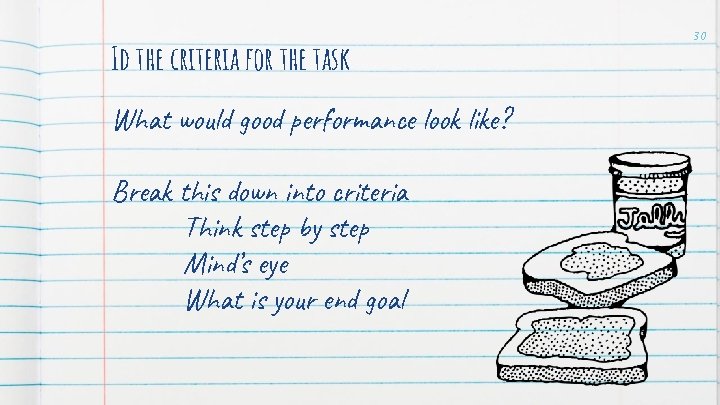 30
Id the criteria for the task
What would good performance look like?
Break this down into criteria
Think step by step
Mind's eye
What is your end goal
Jelly